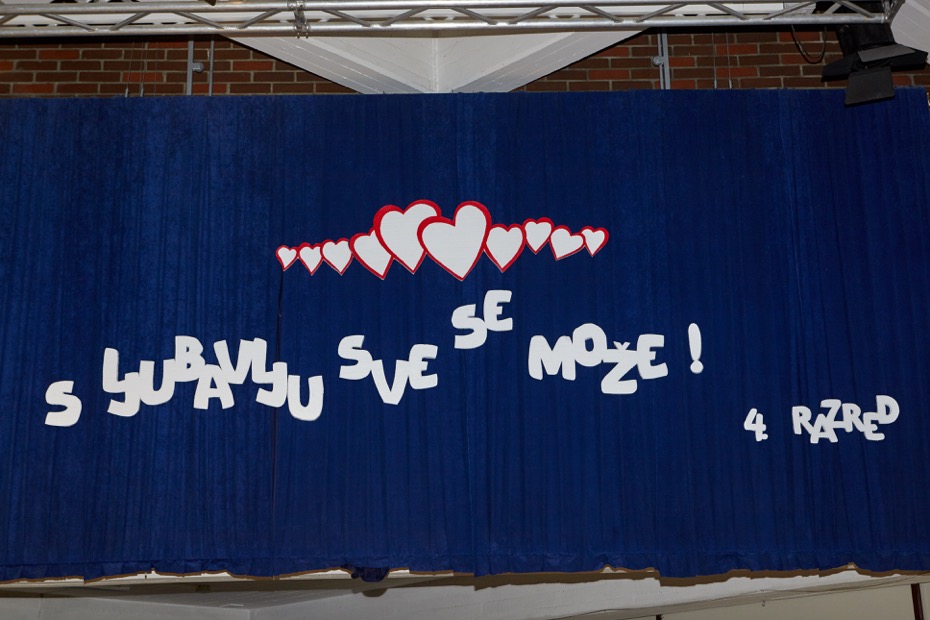 S LJUBAVLJU SVE SE MOŽE!
4. RAZRED